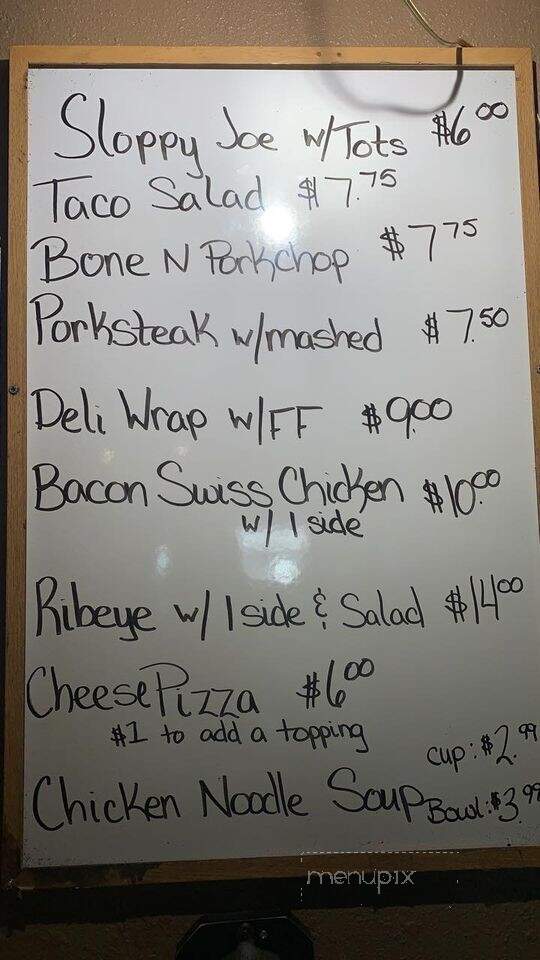 Sloppy Joe w/Tots $6.00
Taco Salad $7.75
Bone N Porkchop $7.75
Porksteak w/mashed $7.50
Deli Wrap w/FF $9.00
Bacon Swiss Chicken $10.00
w/ 1 side
Ribeye w/ 1 side & Salad $14.00
Cheese Pizza $6.00
$1 to add a topping
cup: $2.99
Chicken Noodle Soup Bowl: $3.99
menupix